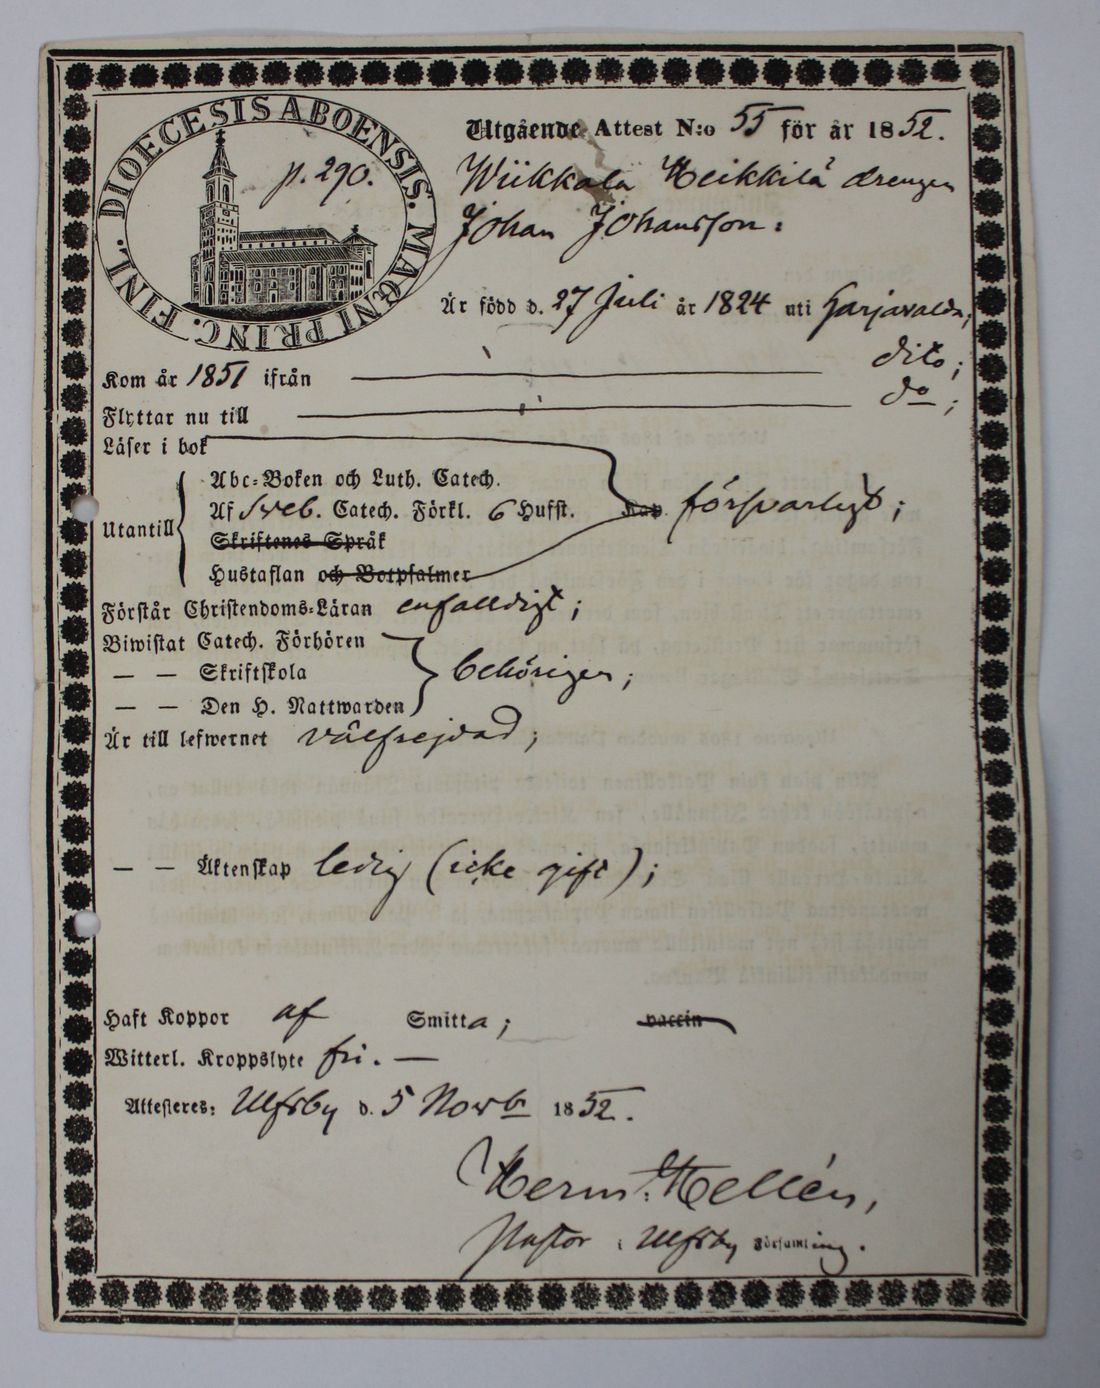 DIOECESIS ABOENSIS. MAGNI PRINC. FINL.
p. 290.
Utgående Attest N:o 55 för år 1852.
Wiikkala Heikkilä drengen
Johan Johansson:
Är född d. 27 Juli år 1824 uti Harjavalda;
Kom år 1851 ifrån dito;
Flyttar nu till do;
Läser i bok
Abc-Boken och Luth. Catech.
Utantill Af Sveb. Catech. Förkl. 6 Hufst. Kap. försvarligt;
Skriftenes Språk
Hustaflan och Botpsalmer
Förstår Christendoms-Läran enfalldigt;
Biwistat Catech. Förhören
— — Skriftskola behörigen;
— — Den H. Nattwarden
Är till lefwernet välfrejdad;
— — Äktenskap ledig (icke gift);
Haft Koppor af Smitta; vaccin
Witterl. Kroppslyte fri. —
Attesteres: Ulfsby d. 5 Novb 1852.
Herm. Hellén,
Pastor i Ulfsby Församling.